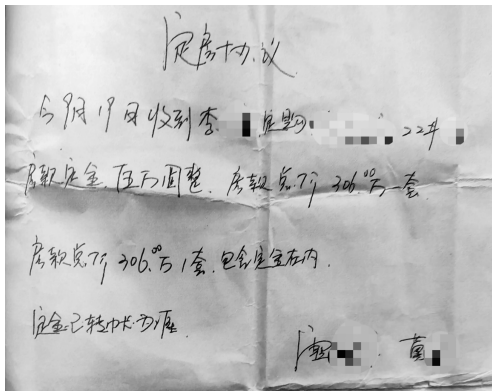 定房协议
今9月19日收到李 定购 22#
房款定金 伍万圆整. 房款总价306.00万一套
房款总价306.00万1套.包含定金在内.
定金已转中长为准.
黄